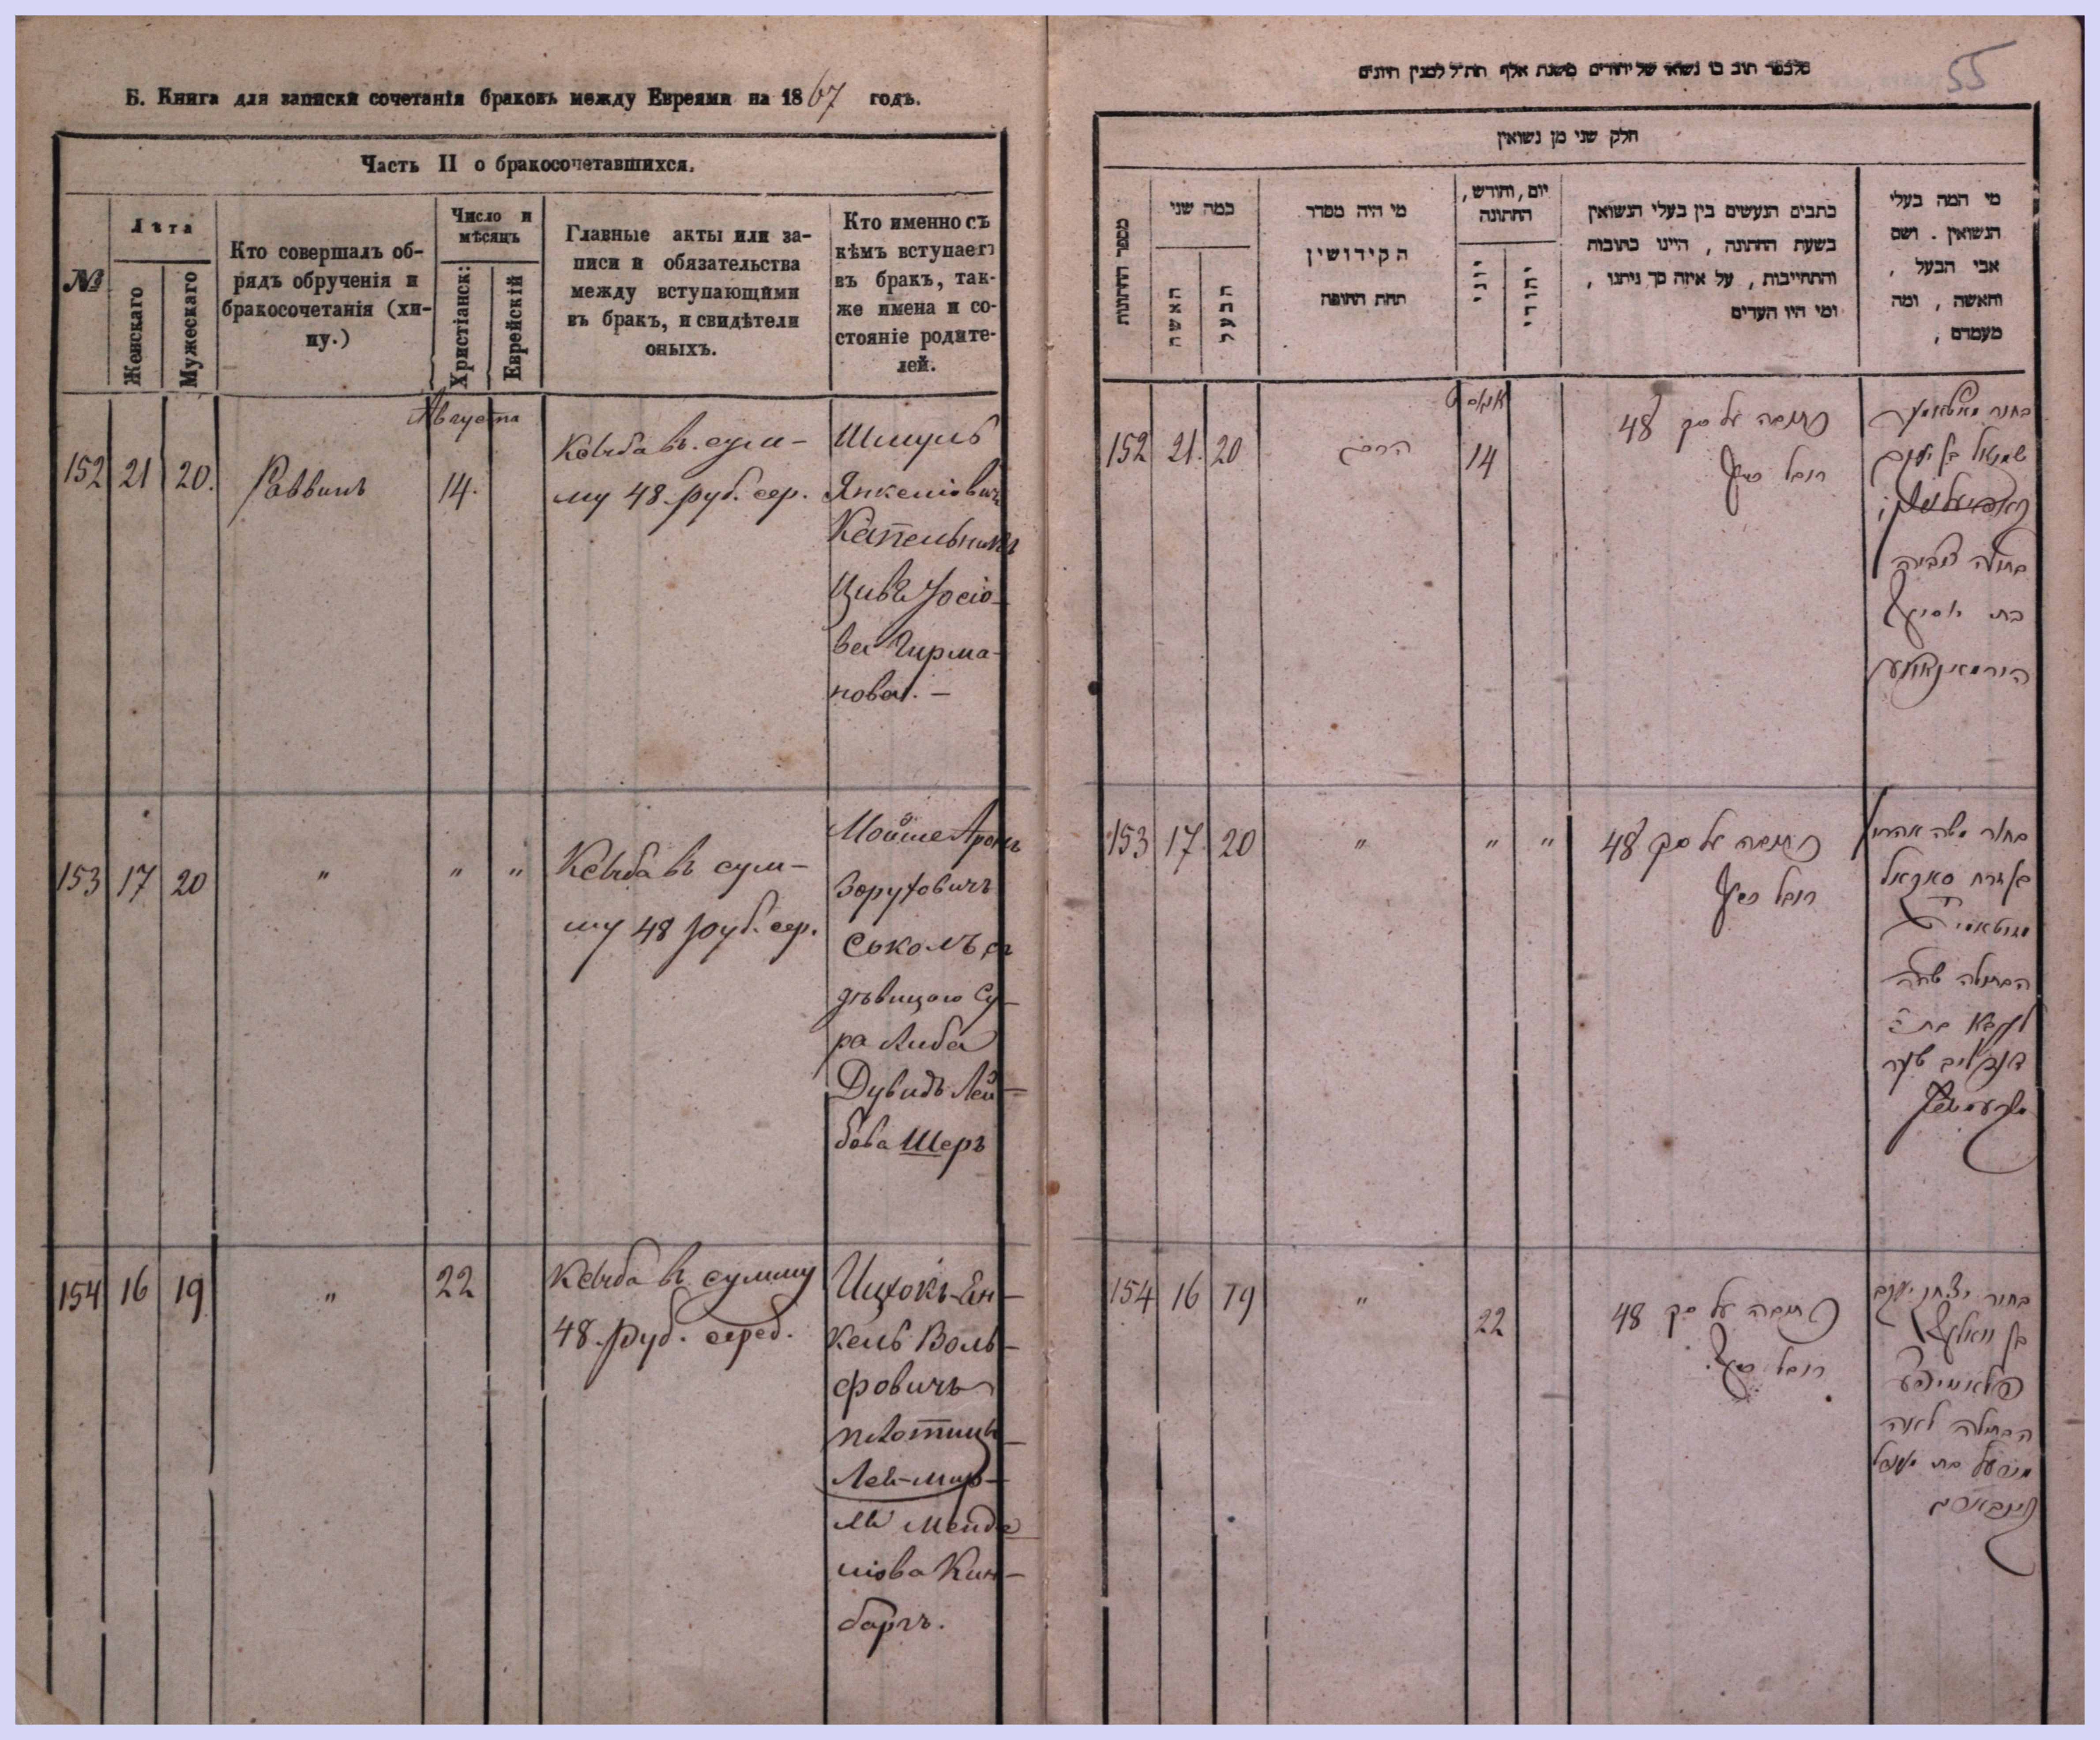 Б. Книга для записки сочетанія браковъ между Евреями на 1867 годъ.
Часть II о бракосочетавшихся.
№
Лѣта
Женскаго
Мужескаго
Кто совершалъ об-
рядъ обрученія и
бракосочетанія (хи-
пу.)
Число и
мѣсяцъ
Христіанск:
Еврейскій
Главные акты или за-
писи и обязательства
между вступающими
въ бракъ, и свидѣтели
оныхъ.
Кто именно съ
кѣмъ вступаетъ
въ бракъ, так-
же имена и со-
стояніе родите-
лей.
Августа
152 21 20. Раввинъ 14.
Ксыба въ сум-
му 48 руб. сер.
Шмуль
Янкеліовичъ
Капельникъ
Цивя Іосіо-
ва Гирма-
нова. —
153 17 20 " " "
Ксыба въ сум-
му 48 руб. сер.
Мойше Аронъ
Зоруховичъ
Соколъ съ
дѣвицою Су-
ра Либа
Дувидъ Лей-
бова Шеръ
154 16 19 " 22
Ксыба въ сумму
48 руб. сереб.
Ицхокъ-Ян-
кель Воль-
фовичъ
Плотница
Лея-Мир-
ля Менде
ліова Кин-
баргъ.
55
חלק שני מן נשואין
מספר החתונות
כמה שני
האשה
הבעל
מי היה מסדר
הקידושין
תחת החופה
יום, וחודש,
החתונה
יוני
יהודי
כתבים הנעשים בין בעלי הנשואין
בשעת החתונה, היינו כתובות
והתחייבות, על איזה סך ניתנו,
ומי היו העדים
מי המה בעלי
הנשואין. ושם
אבי הבעל,
והאשה, ומה
מעמדם,
152 21. 20 הרב 14
כתובה על סך 48
רובל כסף
שמואל בן יעקב
בתולה צביה
153 17. 20 " " "
כתובה על סך 48
רובל כסף
בחור משה אהרון
הבתולה שרה
154 16 19 " 22
כתובה על סך 48
רובל כסף
בחור יצחק יעקב
בן וואלף
הבתולה לאה